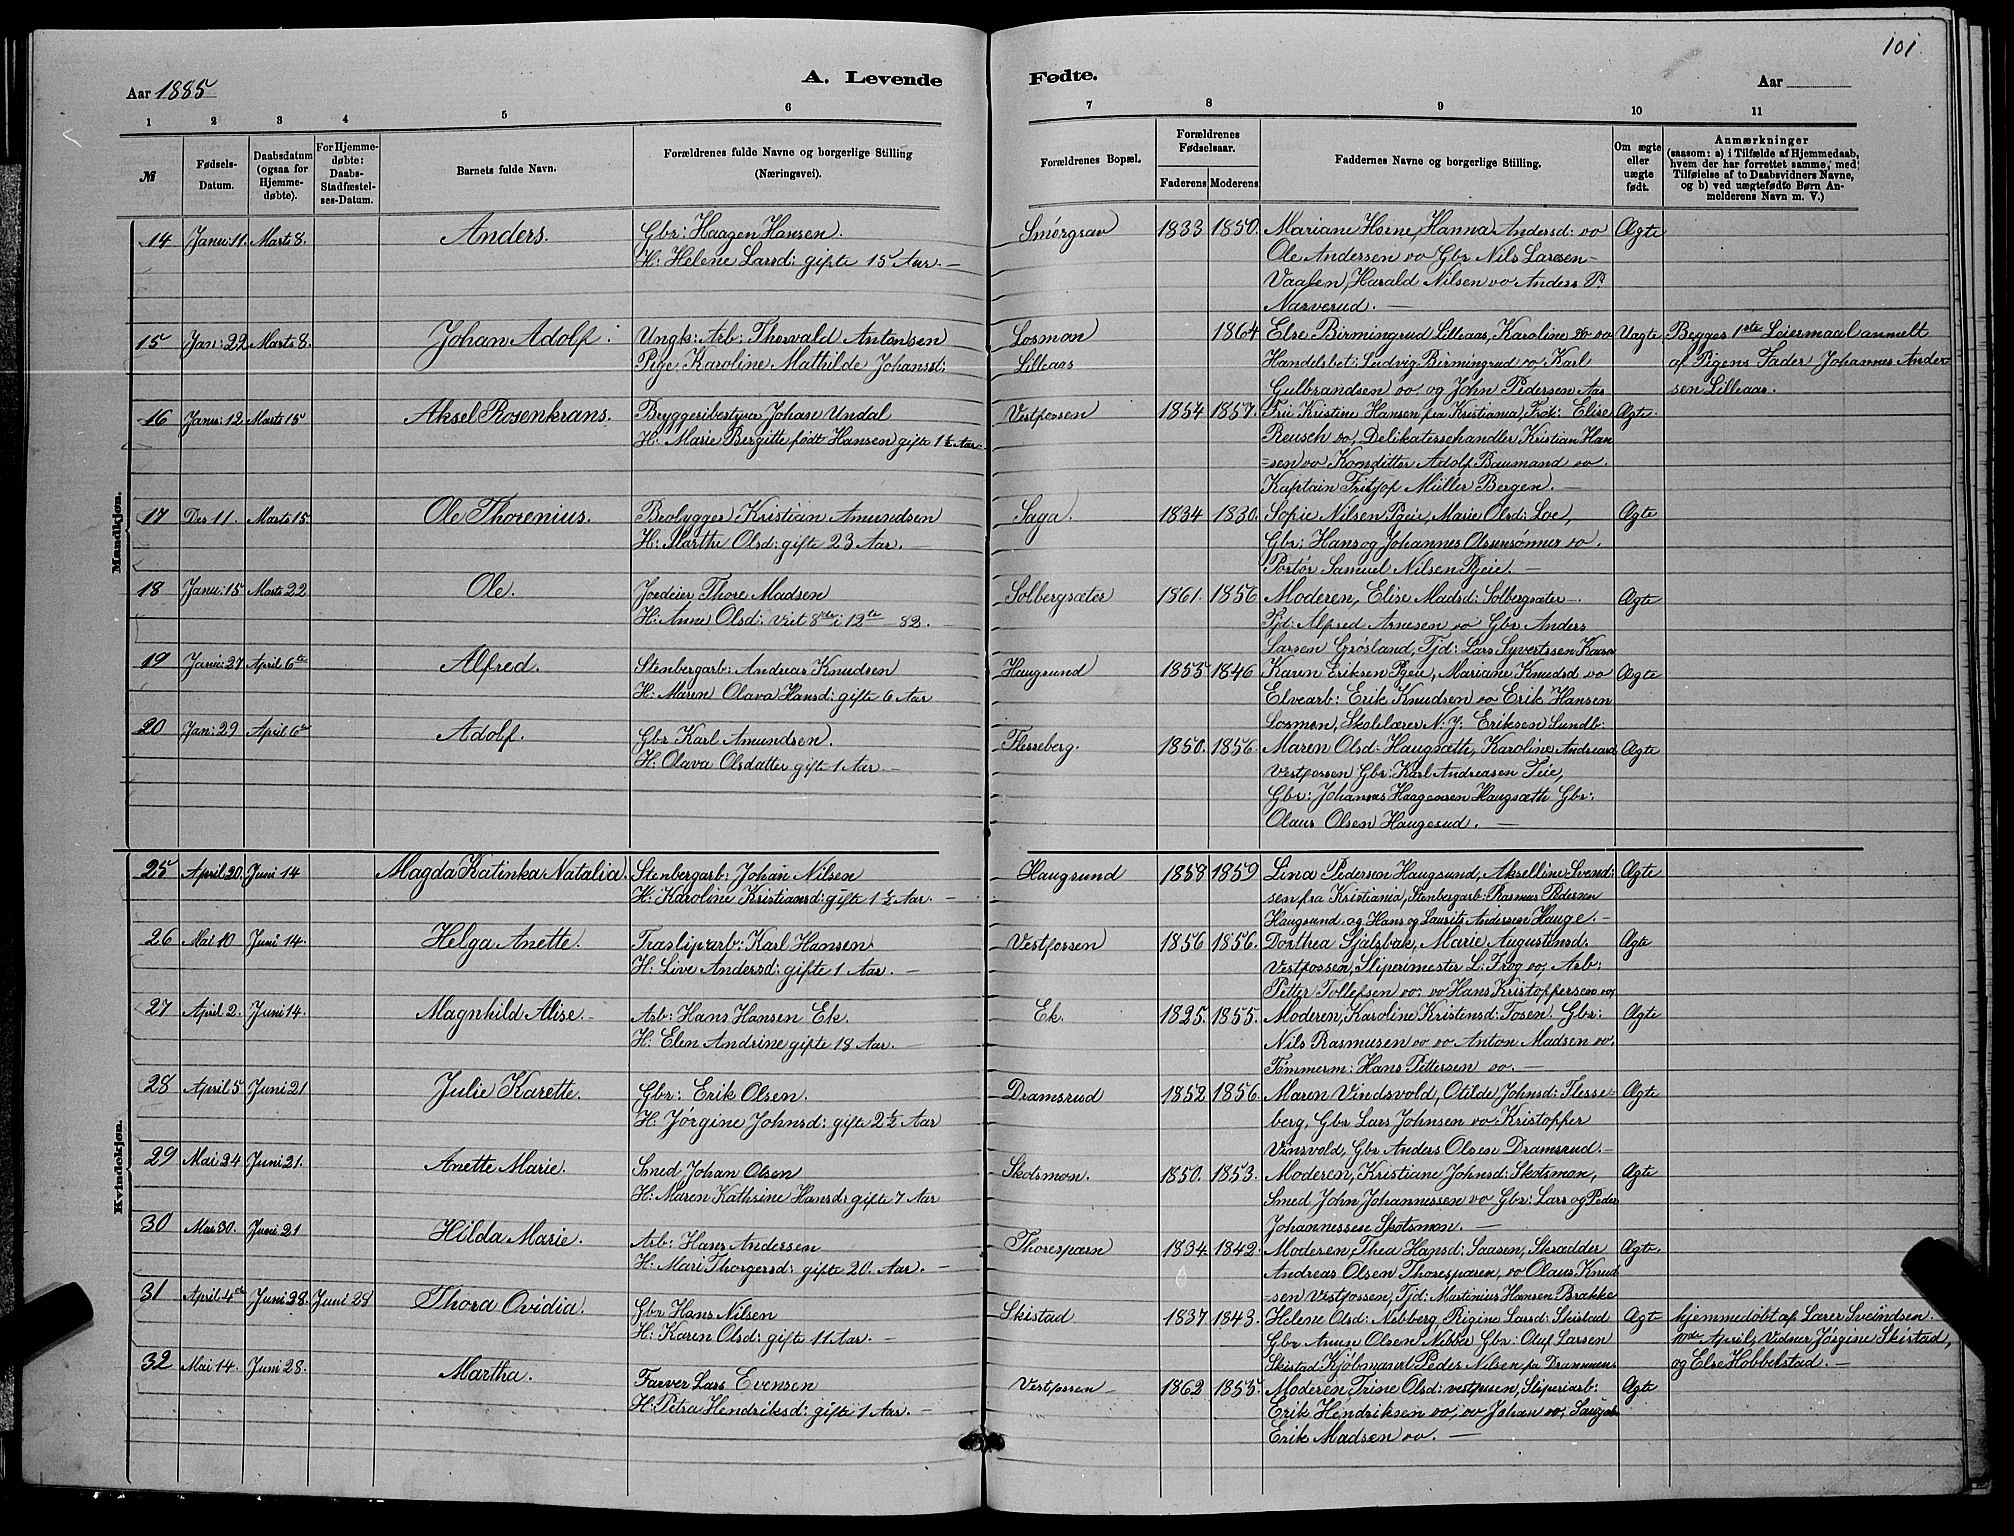 101.
A. Levende Fødte.
Aar 1885
Aar
1 2 3 4 5 6 7 8 9 10 11
№
Fødsels-Datum.
Daabsdatum (ogsaa for Hjemme-døbte).
For Hjemme-døbte: Daabs-Stadfæstel-ses-Datum.
Barnets fulde Navn.
Forældrenes fulde Navne og borgerlige Stilling (Næringsvei).
Forældrenes Bopæl.
Forældrenes Fødselsaar.
Faderens Moderens
Faddernes Navne og borgerlige Stilling.
Om ægte eller uægte født.
Anmærkninger
(saasom: a) i Tilfælde af Hjemmedaab, hvem der har forrettet samme, med Tilføielse af to Daabsvidners Navne, og b) ved uægtefødte Børn An-melderens Navn m. V.)
Mandkjøn.
14 Janu: 11. Marts 8. Anders. Gbr: Haagen Hansen. Smørgrav 1833 1850. Mariane Horne, Hanna Andersd: oo Ægte
H: Helene Larsd: gifte 15 Aar. — Ole Andersen oo Gbr Nils Larsen
Vaalen, Harald Nilsen oo Anders P.
Narverud. —
15 Jan: 22 Marts 8. Johan Adolf. Ungk: Arb: Thorvald Antonsen Losmon 1864 Else Birmingrud Lilleaas, Karoline oo oo Uægte Begges 1ste Leiermaal anmelt
Pige, Karoline Mathilde Johansd: Lilleaas Handelsbet: Ludvig Birmingrud oo Karl af Pigens Fader Johannes Ander-
Gulbrandsen oo og John Pedersen Aas sen Lilleaas.
16 Janu: 12 Marts 15 Aksel Rosenkrans. Bryggeribestyrer Johan Undal Vestfossen 1854 1857. Fru Kristine Hansen fra Kristiania, Frøk: Elise Ægte.
H: Marie Bergitte født Hansen gifte 1½ Aar. Reusch oo, Delikatessehandler Kristian Han
=sen oo Konditter Adolf Baumand oo.
Kaptain Fritjof Müller Bergen. —
17 Des 11. Marts 15. Ole Thorenius. Beobygger Kristian Amundsen Saga. 1834 1830. Sofie Nilsen Pgeie, Marie Olsd: Loe, Ægte
H: Marthe Olsd: gifte 23 Aar. — Gbr: Hans og Johannes Olssensønner oo.
Portør Samuel Nilsen Pgeie. —
18 Janu: 15 Marts 22 Ole. Jordeier Thore Madsen Solbergsæter 1861. 1856 Moderen, Elise Madsd: Solbergsæter Ægte
H: Anne Olsd: viet 8de i 12te 82. — Tjd: Alfred Arnesen oo Gbr Anders
Larsen Grøsland, Tjd: Lars Syvertssen
19 Janu: 27 April 6te Alfred. Stenbergarb: Andreas Knudsen Haugsund 1853 1846 Karen Eriksen Pgeie, Mariane Knudsd oo Ægte
H: Maren Olava Hansd: gifte 6 Aar Elvearb: Erik Knudsen oo Erik Hansen
Losmon, Skolelærer N. J. Eriksen Sundb:
20 Jan: 29 April 6te Adolf. Gbr Karl Amundsen. Flesseberg. 1850. 1856. Maren Olsd: Haugsæth, Karoline Andreasd Ægte
H: Olava Olsdatter gifte 1 Aar. — Vestfossen Gbr: Karl Andreasen Teie,
Gbr: Johannes Haagensen Haugsæth Gbr:
Olaus Olsen Haugesud. —
Kvindekjøn.
25 April 20. Juni 14 Magda Katinka Natalia. Stenbergarb: Johan Nilsen Haugsund 1858 1859 Lina Pedersen Haugsund, Akselline Svend: Ægte
H: Karoline Kristiansd: gifte 1½ Aar. — sen fra Kristiania, Stenbergarb: Rasmus Pedersen
Haugsund og Hans og Laurits Andersen Hauge. —
26 Mai 10 Juni 14. Helga Anette. Træsliparb: Karl Hansen Vestfossen 1856 1856. Dorthea Sjålsbak, Marie Augustinsd. Ægte
H: Live Andersd: gifte 1 Aar. — Vestfossen, Sliperimester L: Frog oo, Arb:
Petter Tollefsen oo: oo Hans Kristoffersen oo
27 April 2. Juni 14. Magnhild Alise. Arb: Hans Hansen Ek. Ek. 1825. 1855. Moderen, Karoline Kristensd: Fosen. Gbr: Ægte
H: Elen Andrine gifte 18 Aar. — Nils Rasmusen oo oo Anton Madsen oo.
Tømmerm: Hans Pettersen oo. —
28 April 5 Juni 21 Julie Karette. Gbr: Erik Olsen. Dramsrud 1852 1856. Maren Vindsvold, Otilde Johnsd: Flesse- Ægte
H: Jørgine Johnsd: gifte 2½ Aar berg, Gbr Lars Johnsen oo Kristoffer
Vinsvold, Gbr Anders Olsen Dramsrud. —
29 Mai 24 Juni 21. Anette Marie. Smed Johan Olsen Skotsmon. 1850. 1853. Moderen, Kristiane Johnsd: Skotsmon, Ægte
H: Maren Kathrine Hansd: gifte 7 Aar Smed John Johannessen oo Gbr: Lars og Peder
Johannessen Skotsmon. —
30 Mar 30. Juni 21 Hilda Marie. Arb: Hans Andersen Thoresparn 1834. 1842. Moderen, Thea Hansd: Saasen, Skrædder Ægte.
H: Mari Thorgersd: gifte 20. Aar. — Andreas Olsen Thoresparen, oo Olaus Knud
=sen Vestfossen, Tjd: Martinius Hansen Brække
31 April 4de Juni 28. Juni 28 Thora Ovidia. Gbr Hans Nilsen Skistad 1837. 1843. Helene Olsd: Nebberg Rigine Larsd: Skistad Ægte hjemmedøbt af Lærer Sveindsen
H: Karen Olsd: gifte 11 Aar. — Gbr Arnun Olsen Nebba Gbr: Oluf Larsen 10de April, Vidner Jørgine Skistad,
Skistad Kjøbmand Peder Nilsen fra Drammen og Else Hobbelstad. —
32 Mai 14. Juni 28. Martha. Farver Lars Evensen Vestfossen 1862 1855. Moderen Trine Olsd: vestfossen, Sliperiarb: Ægte
H: Petra Hendriksd: gifte 1 Aar. — Erik Hendriksen oo, oo Johan oo,
Erik Madsen oo. —